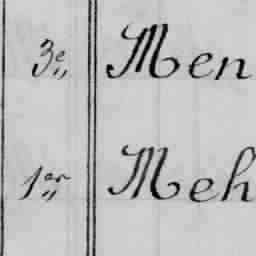 3e Men
1er Meh